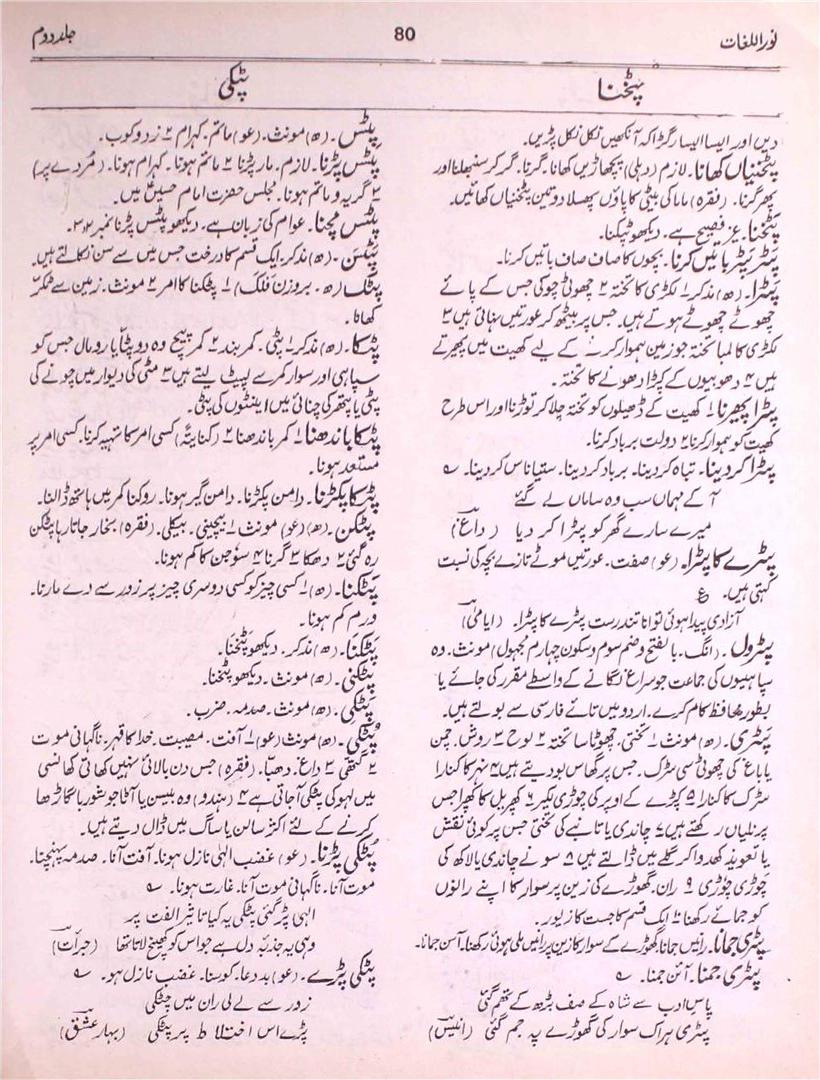 نور اللغات
80
جلد دوم
پٹخنا
پٹکی
دیں اور ایسا ایسا رگڑا کہ آنکھیں نکل نکل پڑیں۔
پٹخنیاں کھانا۔ لازم (دہلی) پچھاڑیں کھانا۔ گرنا۔ گر کر سنبھلنا اور
پھر گرنا۔ (فقرہ) ماما کی بیٹی کا پاؤں پھسلا دو تین پٹخنیاں کھائیں۔
پٹخنا۔ غیر فصیح ہے۔ دیکھو پٹکنا۔
پٹر پٹر باتیں کرنا۔ بچوں کا صاف صاف باتیں کرنا۔
پٹرا۔ (ھ) مذکر ۱ لکڑی کا تختہ ۲ چھوٹی چوکی جس کے پائے
چھوٹے چھوٹے ہوتے ہیں۔ جس پر بیٹھ کر عورتیں نہاتی ہیں ۳
لکڑی کا لمبا تختہ جو زمین ہموار کرنے کے لیے کھیت میں پھیرتے
ہیں ۴ دھوبیوں کے کپڑا دھونے کا تختہ۔
پٹرا پھیرنا ۱ کھیت کے ڈھیلوں کو تختہ چلا کر توڑنا اور اس طرح
کھیت کو ہموار کرنا ۲ دولت برباد کرنا۔
پٹرا کر دینا۔ تباہ کر دینا۔ برباد کر دینا۔ ستیاناس کر دینا۔ ؎
آ کے مہماں سب وہ ساماں لے گئے
میرے سارے گھر کو پٹرا کر دیا (داغ)
پٹرے کا پٹرا۔ (عو) صفت۔ عورتیں موٹے تازے بچہ کی نسبت
کہتی ہیں۔ ع
آزادی پیدا ہوئی توانا تندرست پٹرے کا پٹرا۔ (ایامیٰ)
پٹرول۔ (انگ۔ بالفتح و ضم سوم و سکون چہارم مجہول) مونث۔ وہ
سپاہیوں کی جماعت جو سراغ لگانے کے واسطے مقرر کی جائے یا
بطور محافظ کام کرے۔ اردو میں تائے فارسی سے بولتے ہیں۔
پٹری۔ (ھ) مونث ۱ تختی۔ چھوٹا سا تختہ ۲ لوح ۳ روش۔ چمن
یا باغ کی چھوٹی سی سڑک۔ جس پر گھاس بو دیتے ہیں ۴ نہر کا کنارا
سڑک کا کنارا ۵ کپڑے کے اوپر کی چوڑی لکیر ۶ کھپریل کا کھپرا جس
پر نلیاں رکھتے ہیں ۷ چاندی یا تانبے کی تختی جس پر کوئی نقش
یا تعویذ کھدوا کر گلے میں ڈالتے ہیں ۸ سونے چاندی یا لاکھ کی
چوڑی چوڑی ۹ ران۔ گھوڑے کی زین پر سوار کا اپنے رانوں
کو جمائے رکھنا ۱۰ ایک قسم کا جست کا زیور۔
پٹری جمانا۔ رانیں جمانا۔ گھوڑے کے سوار کا زین پر رانیں ملی ہوئی رکھنا۔ آسن جمانا۔
پٹری جمنا۔ آسن جمنا۔ ؎
پاس ادب سے شاہ کے صف بڑھ کے تھم گئی
پٹری ہر اک سوار کی گھوڑے پہ جم گئی (انیس)
پٹس۔ (ھ) مونث۔ (عو) ماتم۔ کہرام ۲ زد و کوب۔
پٹس پڑنا۔ لازم۔ مار پڑنا ۲ ماتم ہونا۔ کہرام ہونا۔ (مُردے پر)
۲ گریہ و ماتم ہونا۔ مجلس حضرت امام حسینؑ میں۔
پٹس مچنا۔ عوام کی زبان ہے۔ دیکھو پٹس پڑنا نمبر ۲، ۳۔
پٹسن۔ (ھ) مذکر۔ ایک قسم کا درخت جس میں سے سن نکالتے ہیں۔
پٹک (ھ۔ بروزن فلک) ۱ پٹکنا کا امر ۲ مونث۔ زمین سے ٹکّر
کھانا۔
پٹکا۔ (ھ) مذکر ۱ پیٹی۔ کمر بند ۲ کمر پیچ وہ دوپٹّا یا رومال جس کو
سپاہی اور سوار کمر سے لپیٹ لیتے ہیں ۳ مٹی کی دیوار میں چونے کی
پٹی یا پتھر کی چنائی میں اینٹوں کی پٹی۔
پٹکا باندھنا ۱ کمر باندھنا ۲ (کنایتہً) کسی امر کا تہیہ کرنا۔ کسی امر پر
مستعد ہونا۔
پٹکا پکڑنا۔ دامن پکڑنا۔ دامن گیر ہونا۔ روکنا کمر میں ہاتھ ڈالنا۔
پٹکن۔ (ھ) (عو) مونث ۱ بیچینی۔ بیکلی۔ (فقرہ) بخار جاتا رہا پٹکن
رہ گئی ۲ دھکا ۳ گرنا ۴ سوجن کا کم ہونا۔
پٹکنا۔ (ھ) ۱ کسی چیز کو کسی دوسری چیز پر زور سے دے مارنا۔
ورم کم ہونا۔
پٹکنا۔ (ھ) مذکر۔ دیکھو پٹخنا۔
پٹکنی۔ (ھ) مونث۔ دیکھو پٹخنا۔
پٹکی۔ (ھ) مونث۔ صدمہ۔ ضرب۔
پٹکی۔ (ھ) مونث (عو) ۱ آفت۔ مصیبت۔ خدا کا قہر۔ ناگہانی موت
۲ گٹھی ۳ داغ۔ دھبّا۔ (فقرہ) جس دن بالائی نہیں کھاتی کھانسی
میں لہو کی پٹکی آجاتی ہے ۴ (ہندو) وہ بیسن یا آٹا جو شوربا گاڑھا
کرنے کے لئے اکثر سالن یا ساگ میں ڈال دیتے ہیں۔
پٹکی پڑنا۔ (عو) غضب الٰہی نازل ہونا۔ آفت آنا۔ صدمہ پہنچنا۔
موت آنا۔ ناگہانی موت آنا۔ غارت ہونا۔ ؎
الٰہی پڑ گئی پٹکی یہ کیا تاثیر الفت پر
وہی یہ جذبۂ دل ہے جو اس کو کھینچ لاتا تھا (جرأت)
پٹکی پڑے۔ (عو) بد دعا۔ کوسنا۔ غضب نازل ہو۔ ؎
زور سے لے لی ران میں چٹکی
پڑے اس اختلاط پر پٹکی (بہار عشق)